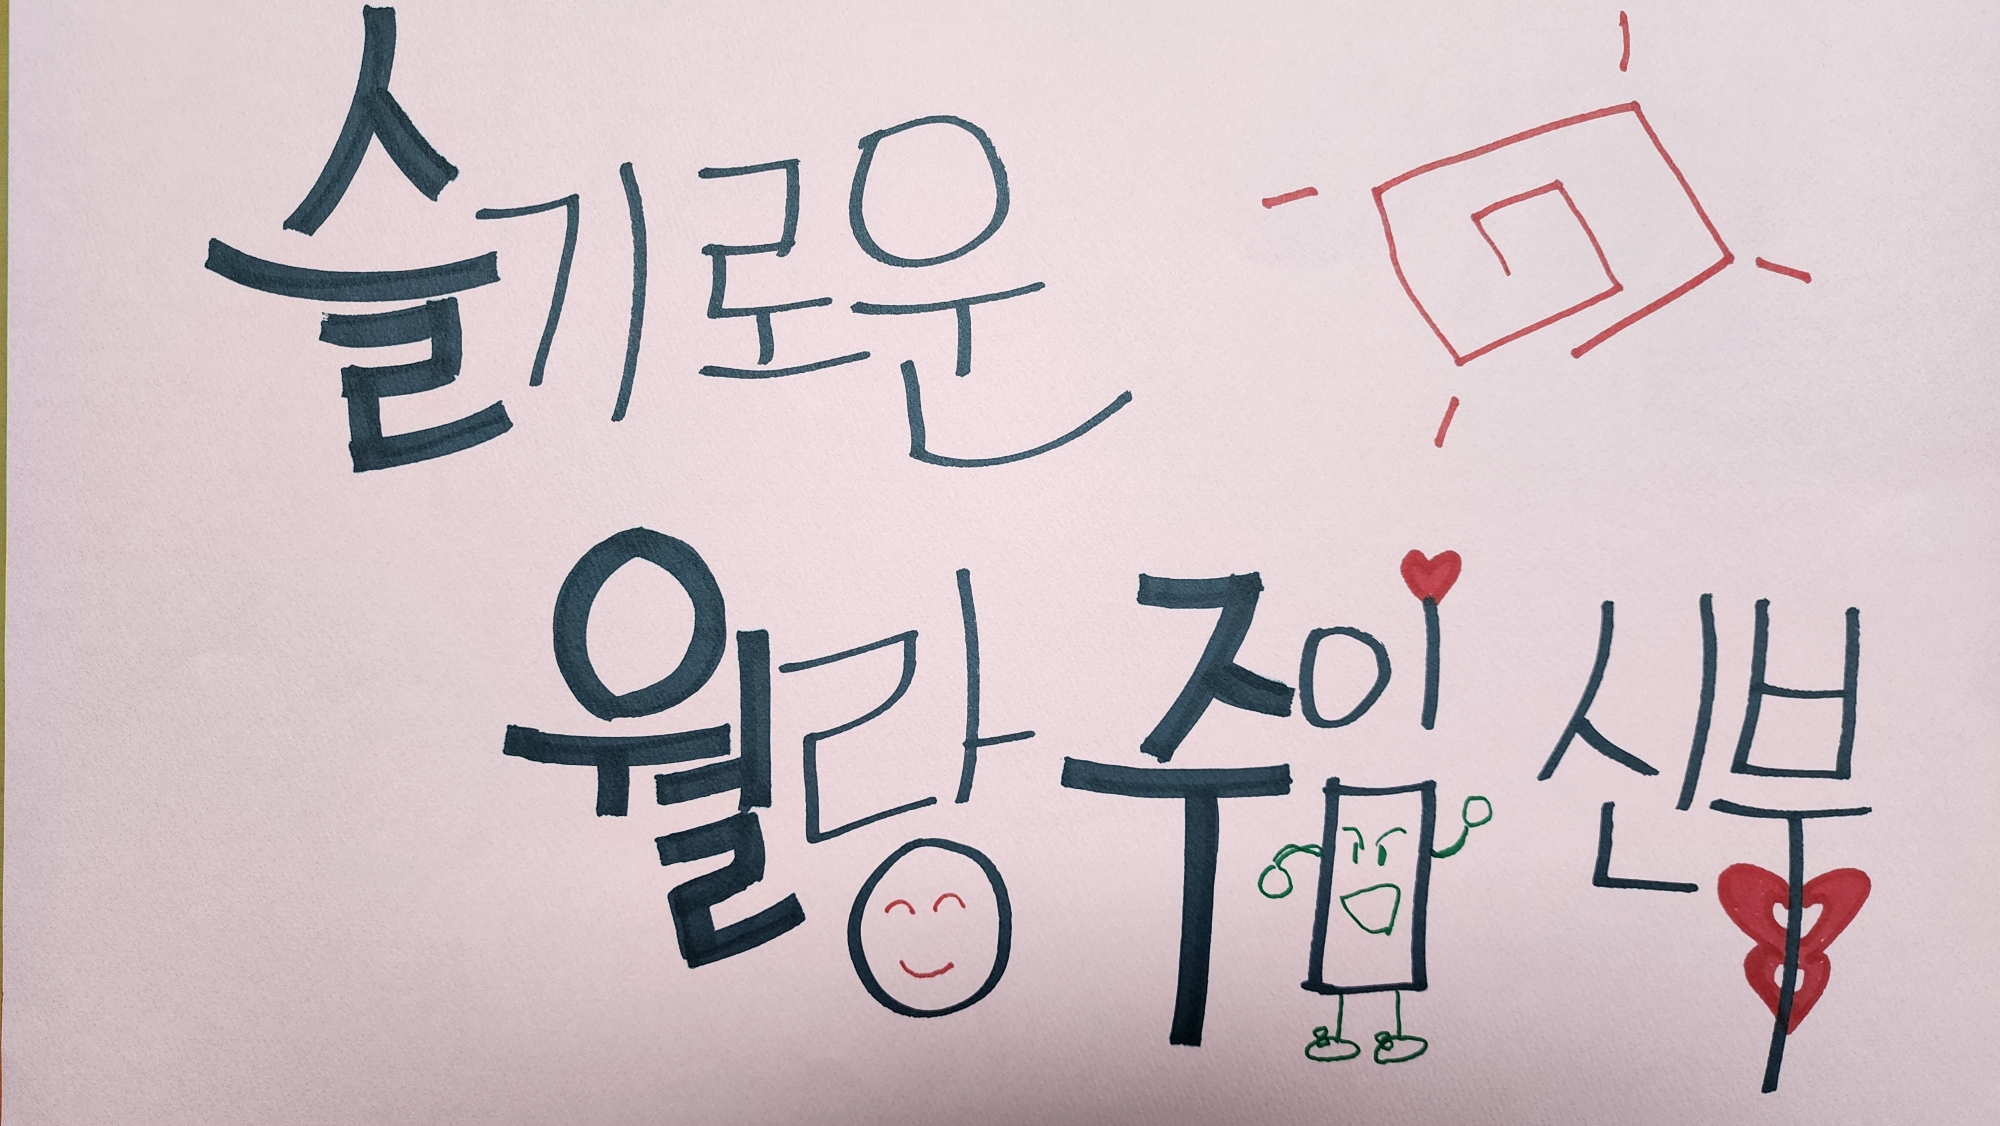 슬기로운
월랑 주임 신부